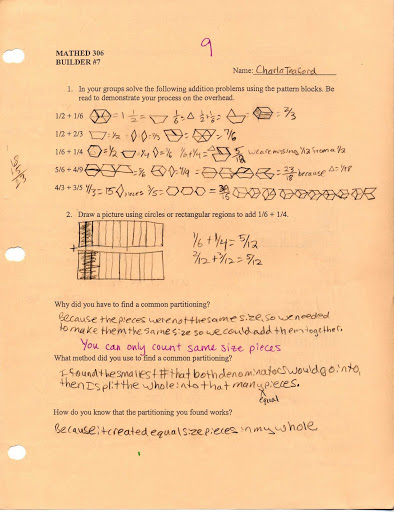 9
MATHED 306
BUILDER #7
Name: Charla Teaford
1. In your groups solve the following addition problems using the pattern blocks. Be
read to demonstrate your process on the overhead.
1/2 + 1/6 = 1 1/2 = 1/6 = 1/2 + 1/6 = = 2/3
1/2 + 2/3 = 1/2 = 2/3 = = 7/6
1/6 + 1/4 = 1/2 = 1/4 = 1/6 1/6 + 1/4 = 5/12 we are missing 1/12 from a 1/2
5/6 + 4/9 = 5/6 = 4/9 = 23/18 because = 1/18
4/3 + 3/5 4/3 = 15 pieces 3/5 =
2. Draw a picture using circles or rectangular regions to add 1/6 + 1/4.
+
1/6 + 1/4 = 5/12
2/12 + 3/12 = 5/12
Why did you have to find a common partitioning?
Because the pieces were not the same size, so we needed
to make them the same size so we could add them together.
You can only count same size pieces
What method did you use to find a common partitioning?
I found the smallest # that both denominators would go into,
then I split the whole into that many pieces.
equal
How do you know that the partitioning you found works?
Because it created equal size pieces in my whole